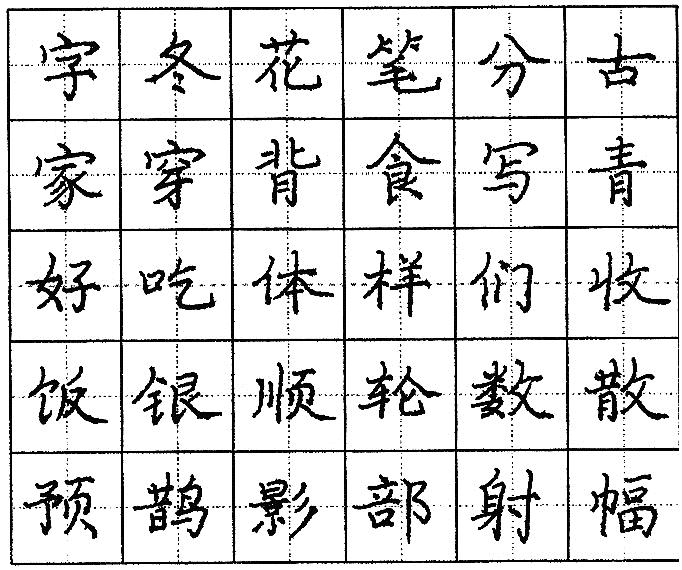 字冬花笔分古
家穿背食写青
好吃体样们收
饭银顺轮数散
预鹊影部射幅